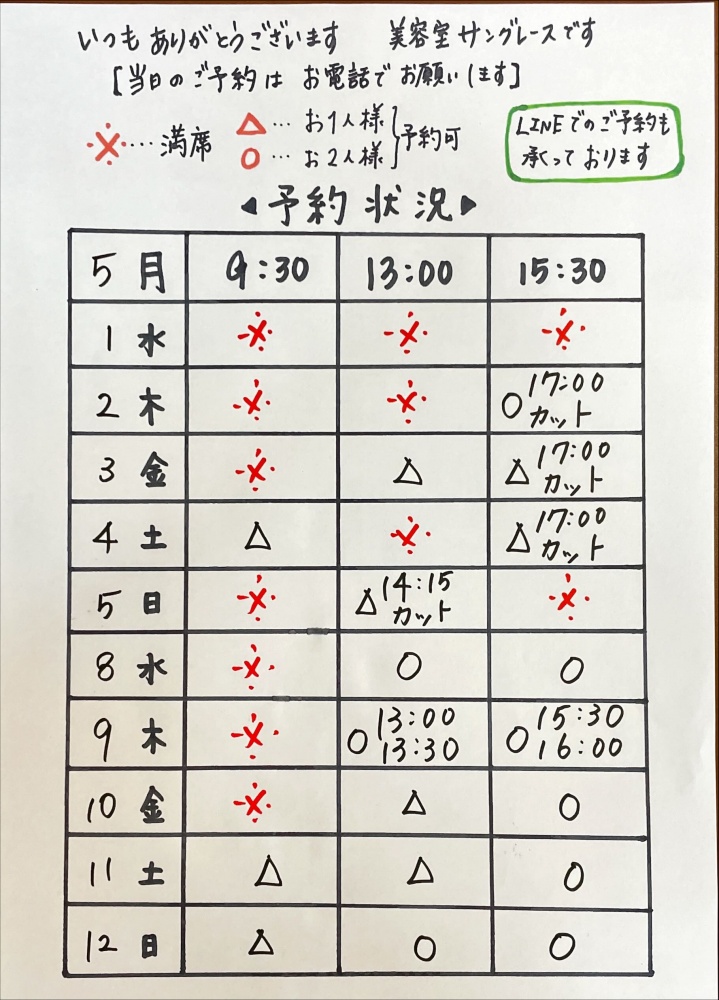 いつもありがとうございます 美容室サングレースです
[当日のご予約はお電話でお願いします]
※…満席
△…お1人様
○…お2人様
予約可
LINEでのご予約も
承っております
◀予約状況▶
5月 9:30 13:00 15:30
1水 ※ ※ ※
2木 ※ ※ ○17:00カット
3金 ※ △ △17:00カット
4土 △ ※ △17:00カット
5日 ※ △14:15カット ※
8水 ※ ○ ○
9木 ※ ○13:00 13:30 ○15:30 16:00
10金 ※ △ ○
11土 △ △ ○
12日 △ ○ ○